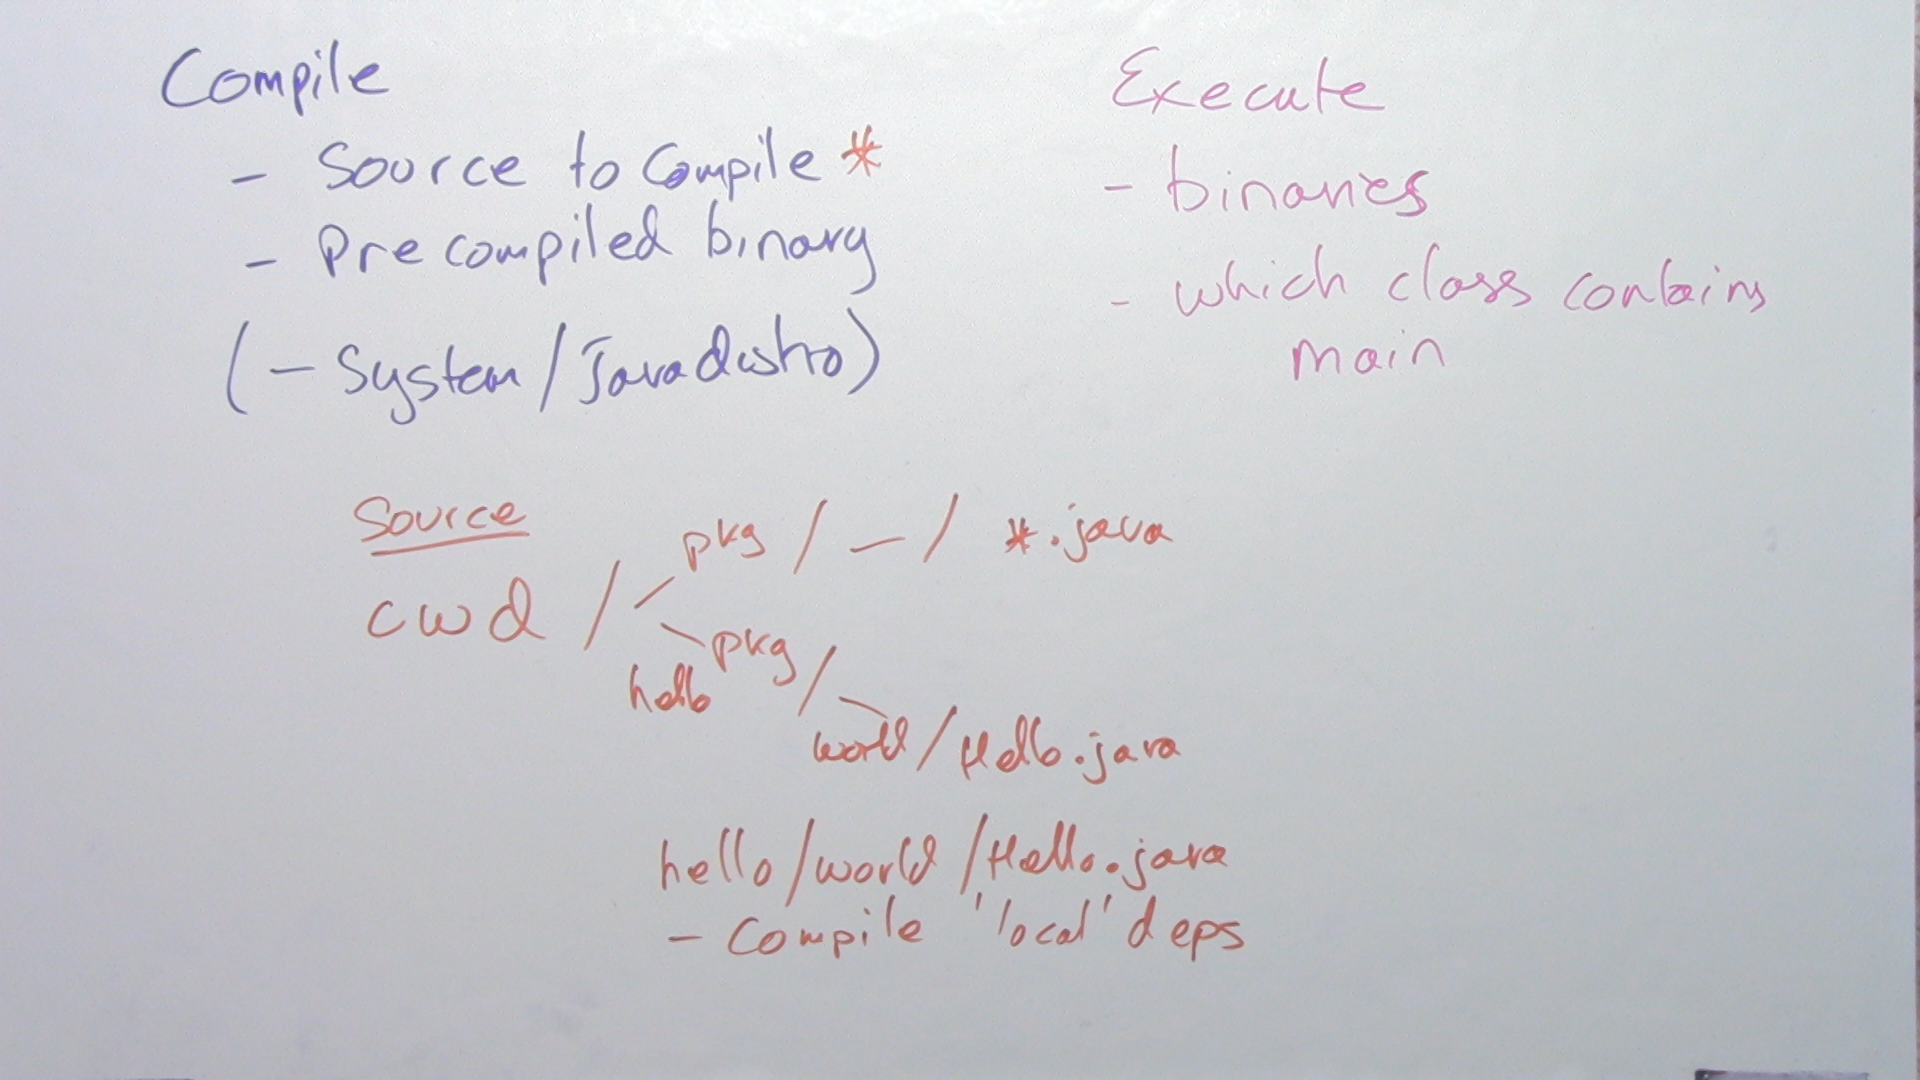 Compile
- Source to Compile *
- Precompiled binary
(- System / Java distro)
Execute
- binaries
- which class contains
main
Source
cwd / pkg / - / *.java
pkg /
hello
world / Hello.java
hello / world / Hello.java
- Compile 'local' deps